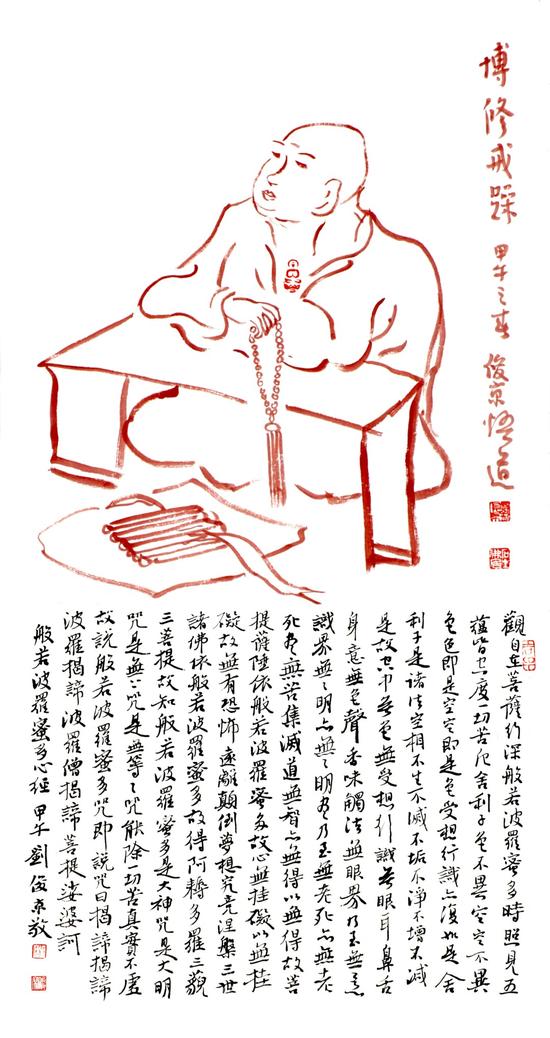 博修戒躁 甲午之春 俊京悟道
觀自在菩薩行深般若波羅蜜多時照見五
蘊皆空度一切苦厄舍利子色不異空空不異
色色即是空空即是色受想行識亦復如是舍
利子是諸法空相不生不滅不垢不淨不增不減
是故空中無色無受想行識無眼耳鼻舌
身意無色聲香味觸法無眼界乃至無意
識界無々明亦無々明盡乃至無老死亦無老
死盡無苦集滅道無智亦無得以無得故菩
提薩陲依般若波羅蜜多故心無挂礙以無挂
礙故無有恐怖遠離顛倒夢想究竟涅槃三世
諸佛依般若波羅蜜多故得阿耨多羅三藐
三菩提故知般若波羅蜜多是大神咒是大明
咒是無上咒是無等々咒能除一切苦真實不虛
故說般若波羅蜜多咒即說咒曰揭諦揭諦
波羅揭諦波羅僧揭諦菩提娑婆訶
般若波羅蜜多心經 甲午 劉俊京敬